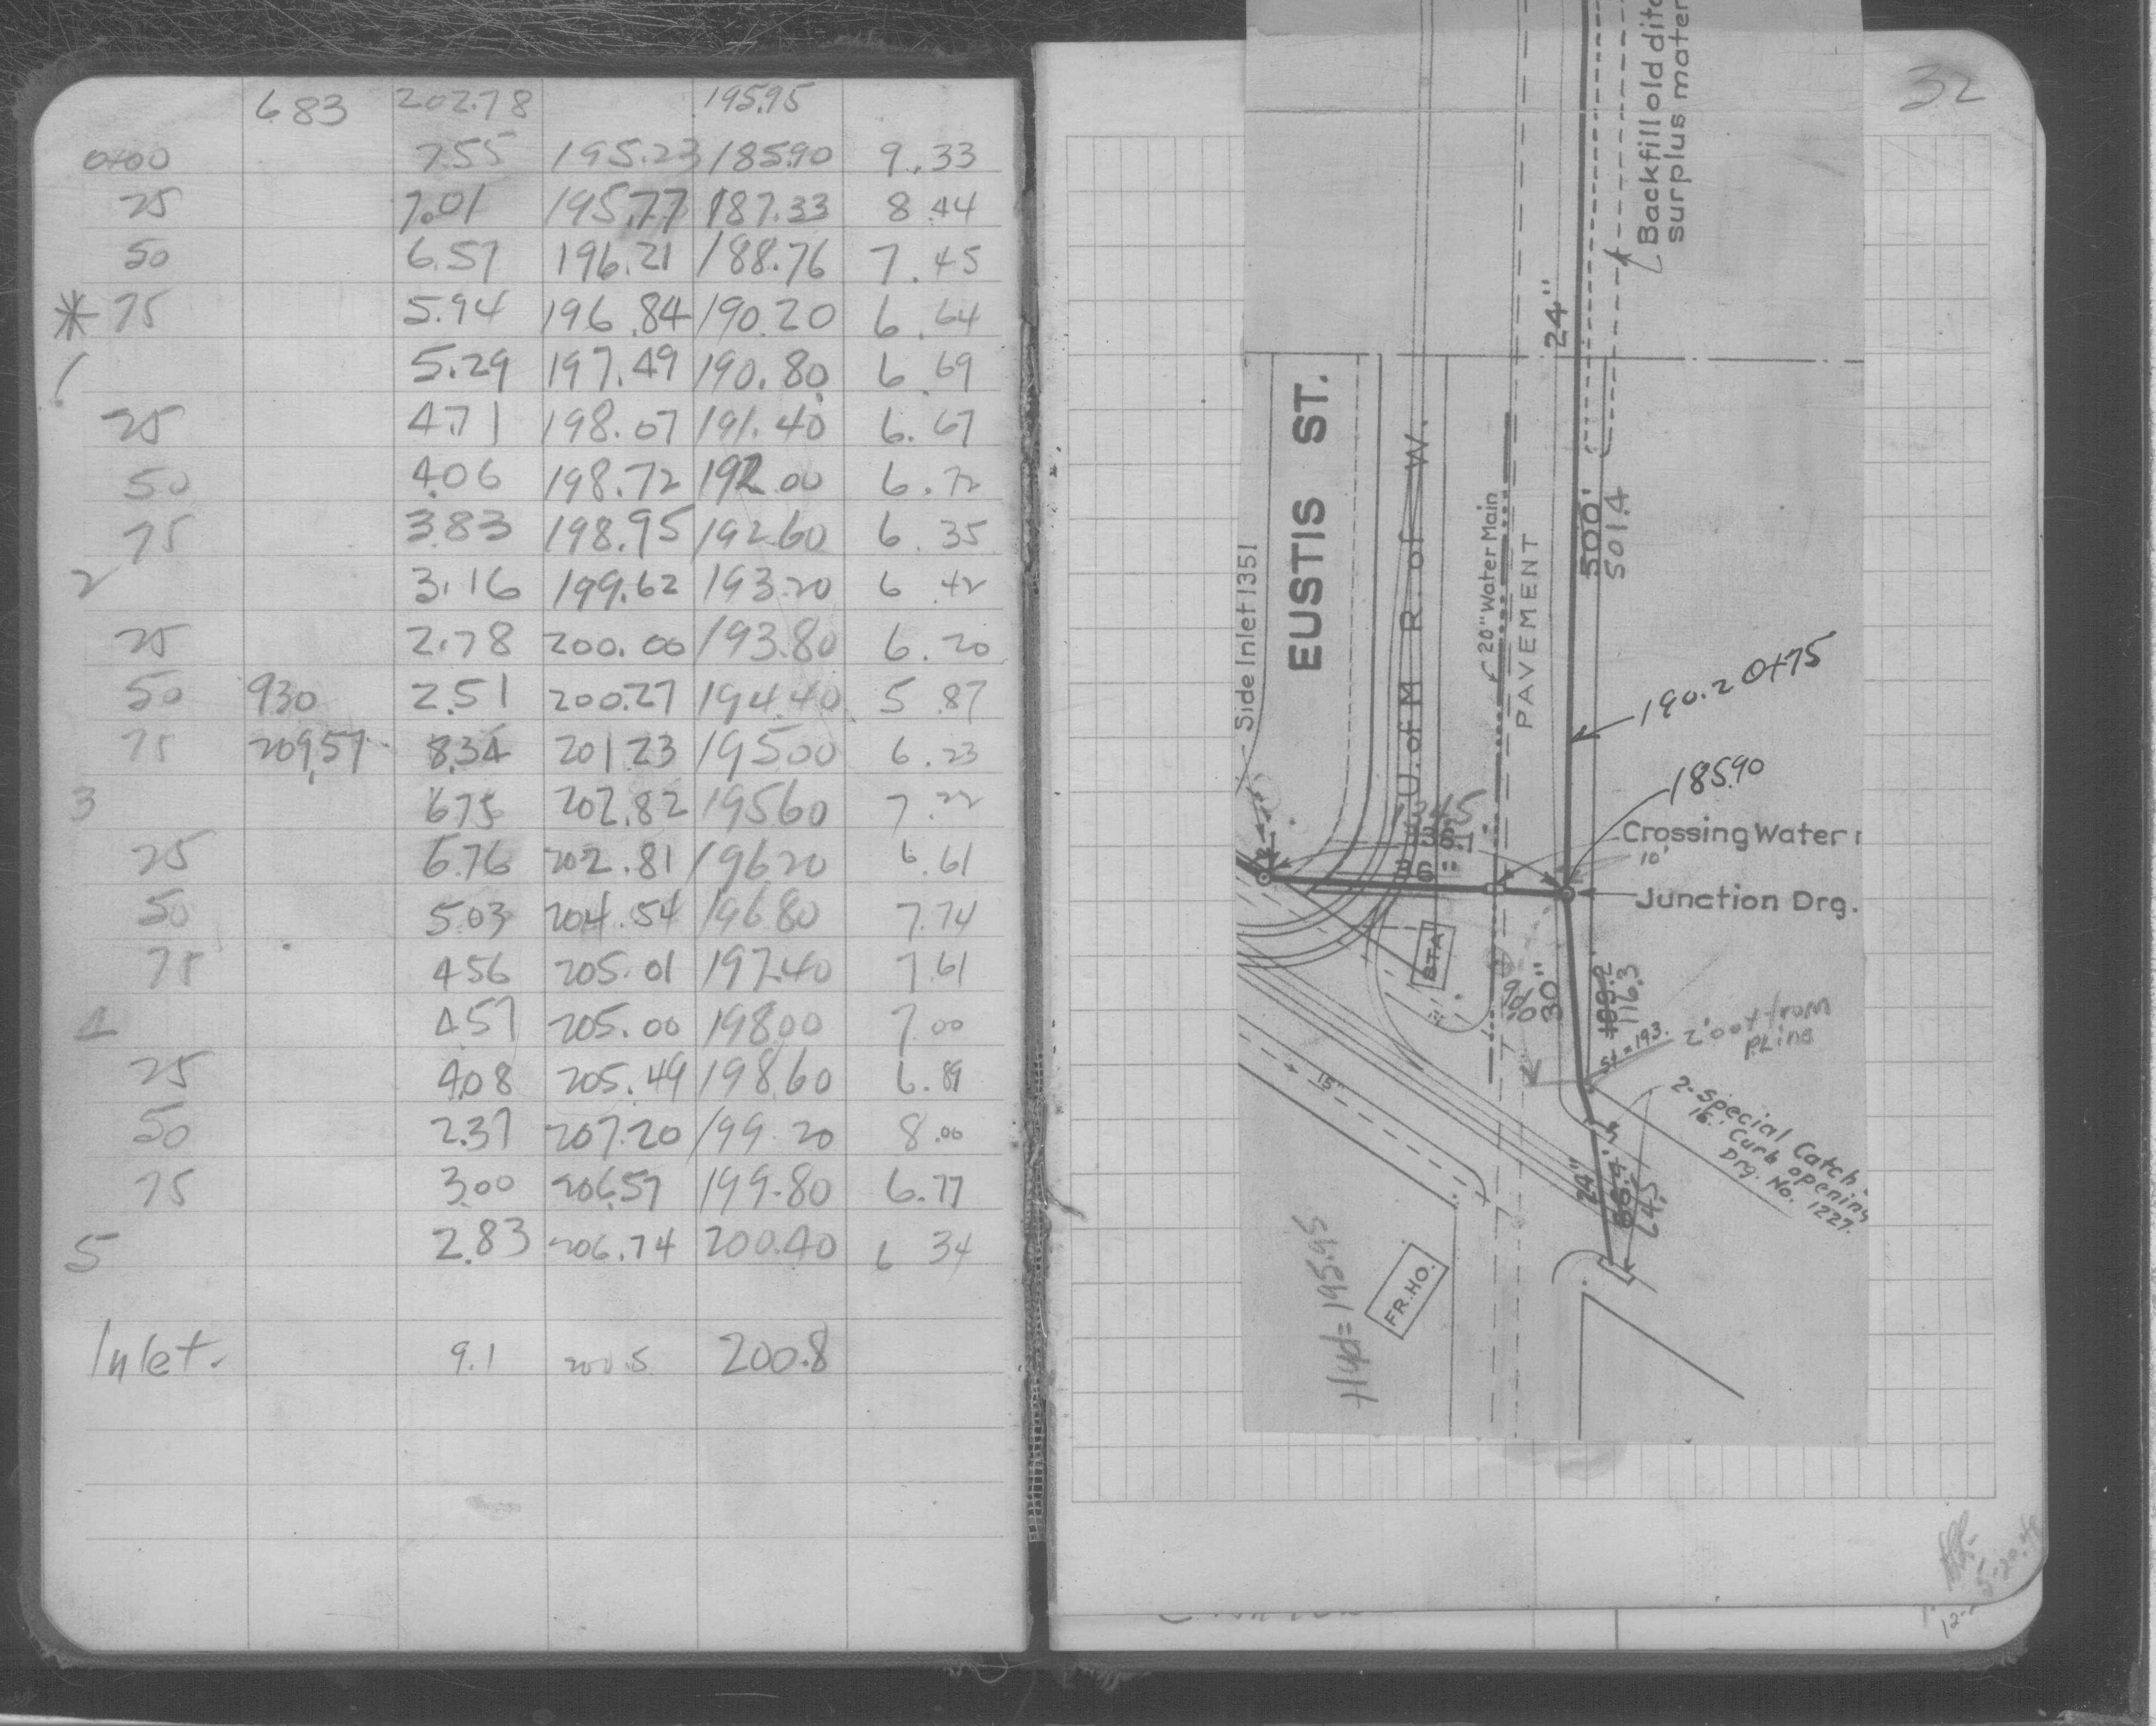 683 202.78 195.95
0+00 7.55 195.23 185.90 9.33
25 7.01 195.77 187.33 8.44
50 6.57 196.21 188.76 7.45
* 75 5.94 196.84 190.20 6.64
1 5.29 197.49 190.80 6.69
25 4.71 198.07 191.40 6.67
50 4.06 198.72 192.00 6.72
75 3.83 198.95 192.60 6.35
2 3.16 199.62 193.20 6.42
25 2.78 200.00 193.80 6.20
50 930 2.51 200.27 194.40 5.87
75 209.57 8.34 201.23 195.00 6.23
3 6.75 202.82 195.60 7.22
25 6.76 202.81 196.20 6.61
50 5.03 204.54 196.80 7.74
75 4.56 205.01 197.40 7.61
4 4.57 205.00 198.00 7.00
25 4.08 205.49 198.60 6.89
50 2.37 207.20 199.20 8.00
75 3.00 206.57 199.80 6.77
5 2.83 206.74 200.40 6.34
Inlet. 9.1 200.5 200.8
32
Backfill old ditc
surplus mater
24"
EUSTIS ST.
U. of M R. of W.
Side Inlet 1351
20" Water Main
PAVEMENT
500'
501.4
190.2 0+75
185.90
Crossing Water
10'
Junction Drg.
36"
STA
30"
109.2'
116.3
St = 193.
2' out from
PLine
2-Special Catch
16' Curb opening
Drg. No. 1227.
15"
24"
64.5
FR. HO.
Hyd = 195.95
5-20-48
12-